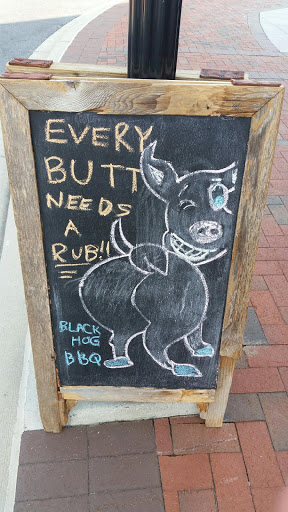 EVERY
BUTT
NEEDS
A
RUB!!
BLACK
HOG
BBQ